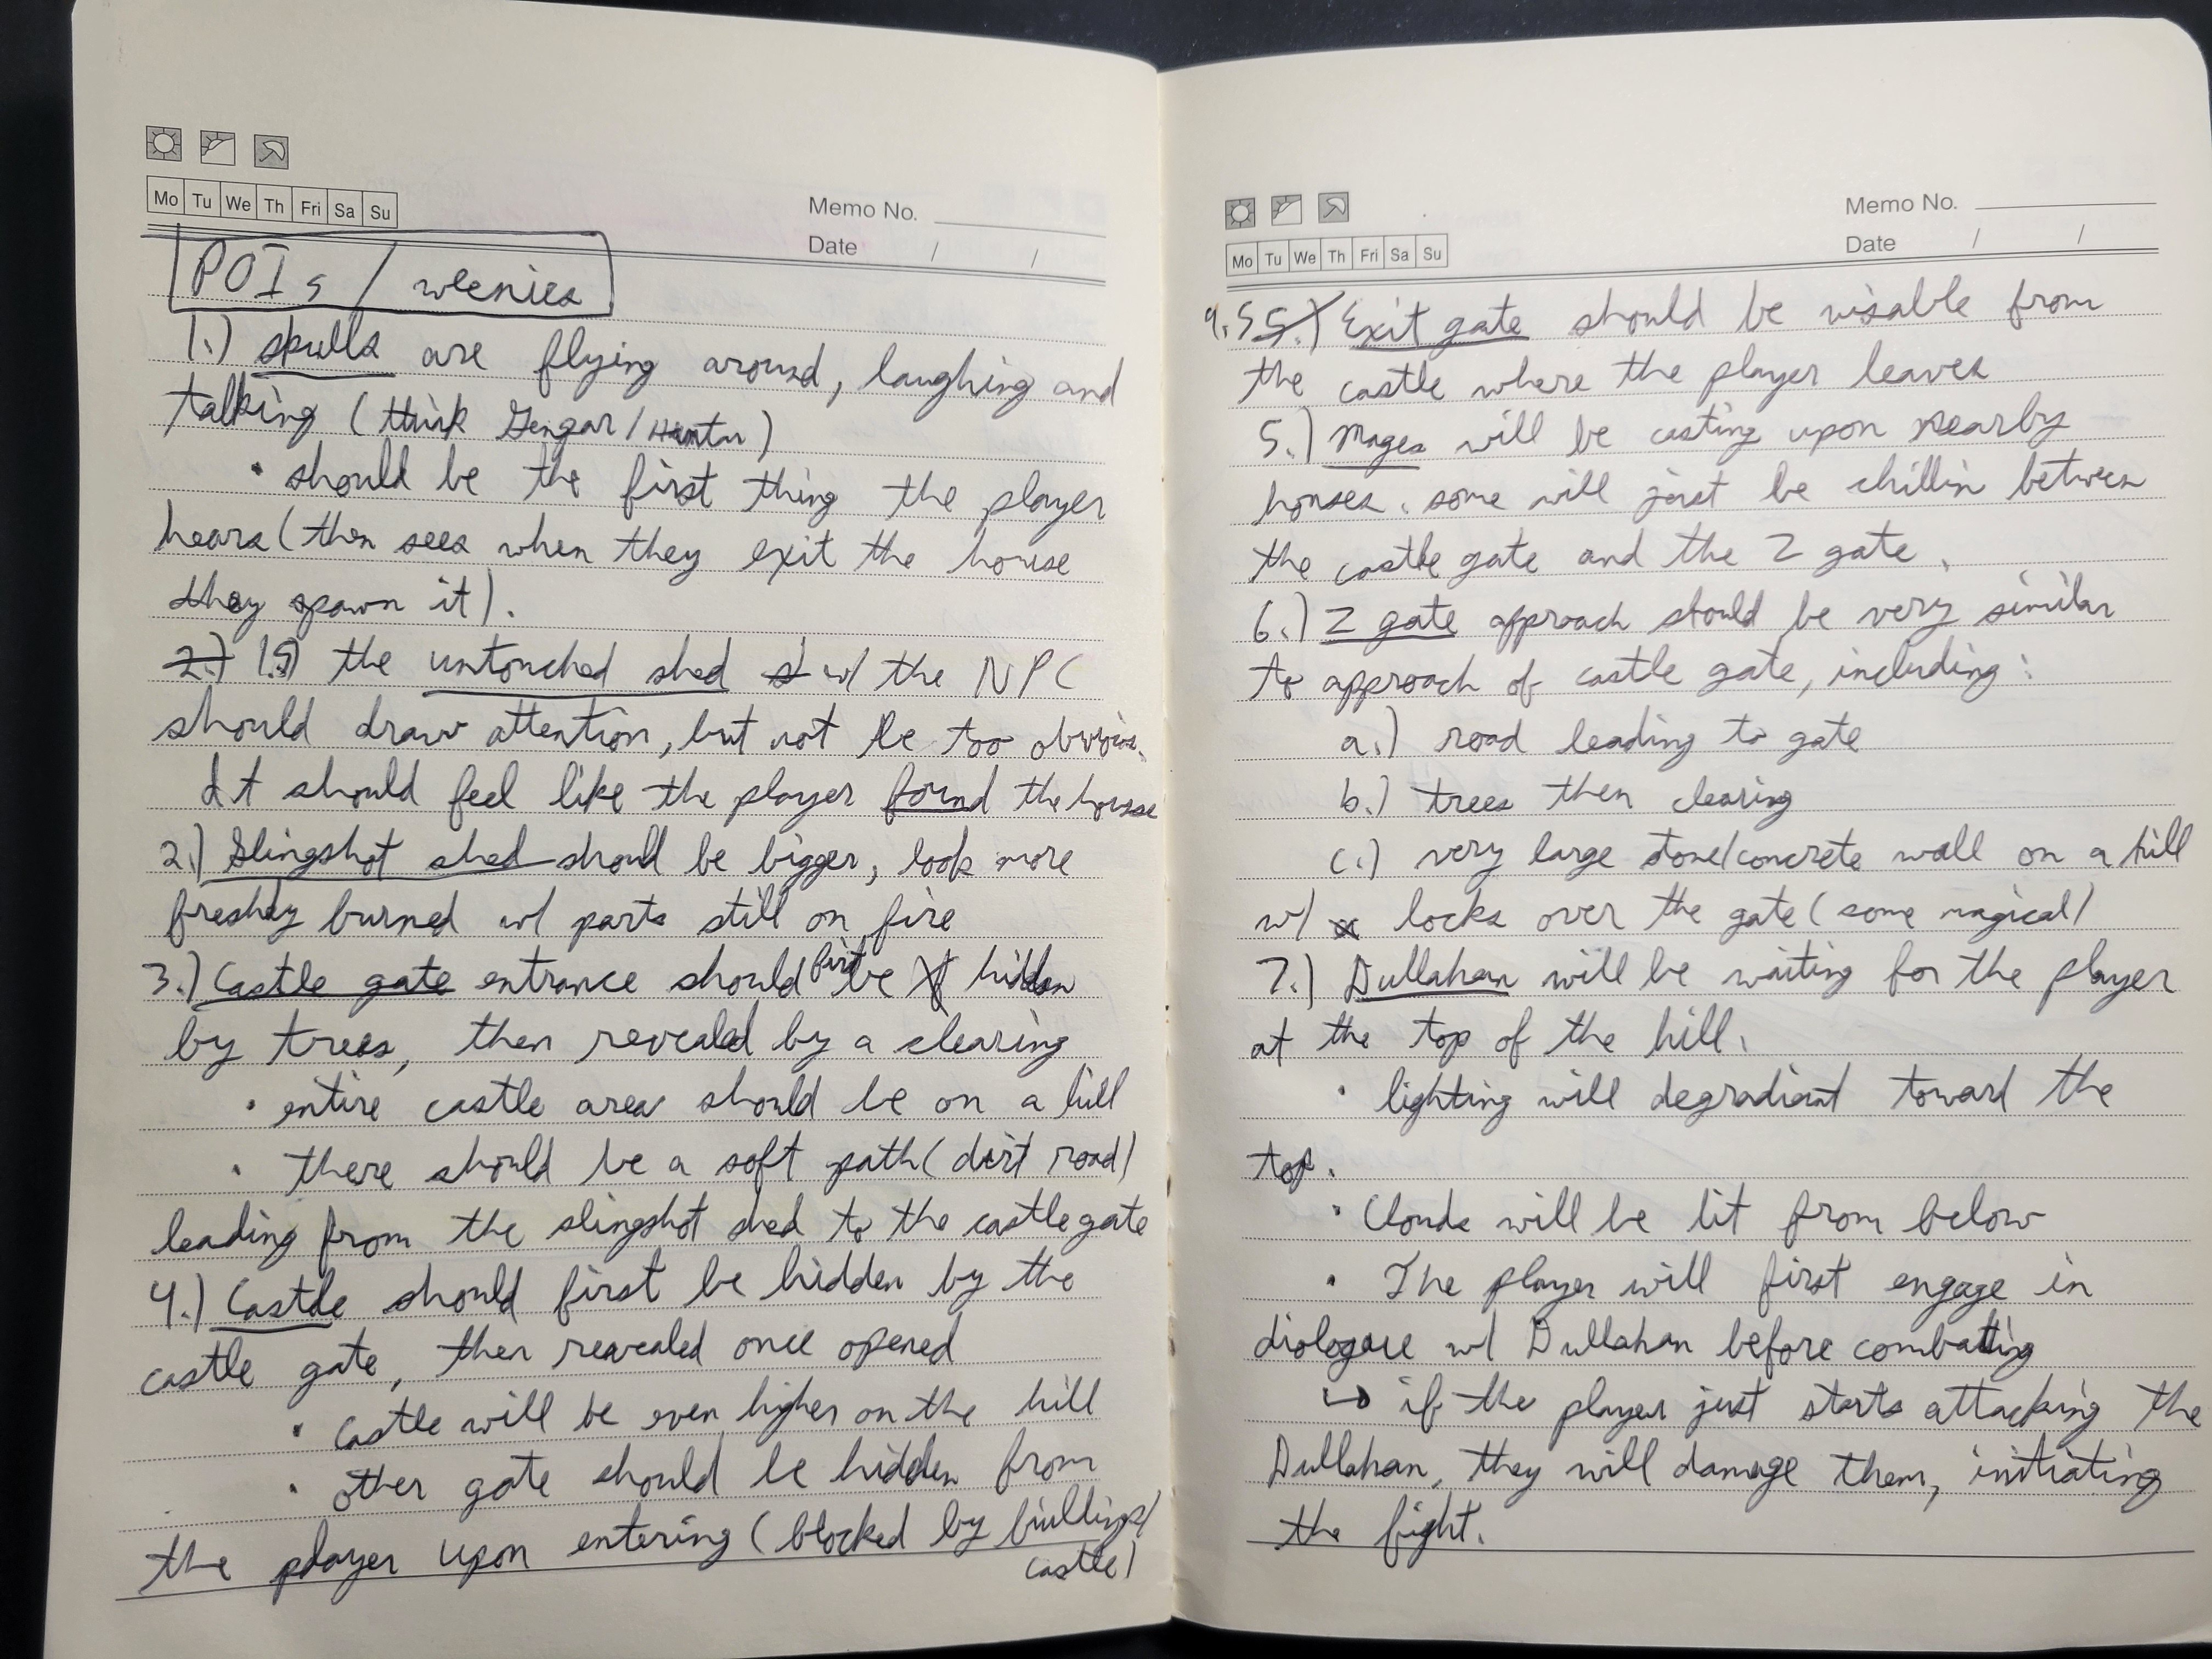 Mo Tu We Th Fri Sa Su
Memo No.
Date / /
POIs / wenies
1.) skulls are flying around, laughing and
talking (think Gengar/Haunter)
• should be the first thing the player
hears (then sees when they exit the house
they spawn it).
2.) 1.5) the untouched shed w/ the NPC
should draw attention, but not be too obvious.
It should feel like the player found the house
2.) Slingshot shed should be bigger, look more
freshly burned w/ parts still on fire
3.) Castle gate entrance should first be hidden
by trees, then revealed by a clearing
• entire castle area should be on a hill
• there should be a soft path (dirt road)
leading from the slingshot shed to the castle gate
4.) Castle should first be hidden by the
castle gate, then revealed once opened
• Castle will be even higher on the hill
• other gate should be hidden from
the player upon entering (blocked by buildings/
castle)
Mo Tu We Th Fri Sa Su
Memo No.
Date / /
4.5 5.) Exit gate should be visable from
the castle where the player leaves
5.) Mages will be casting upon nearby
houses, some will just be chillin between
the castle gate and the 2 gate.
6.) 2 gate approach should be very similar
to approach of castle gate, including:
a.) road leading to gate
b.) trees then clearing
c.) very large stone/concrete wall on a hill
w/ locks over the gate (some magical)
7.) Dullahan will be waiting for the player
at the top of the hill.
• lighting will degradient toward the
top.
• Clouds will be lit from below
• The player will first engage in
dialogue w/ Dullahan before combating
↳ if the player just starts attacking the
Dullahan, they will damage them, initiating
the fight.